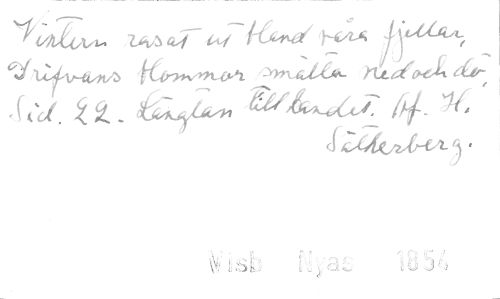 Vintern rasat ut bland våra fjellar,
Drifvans blommor smälta ned och dö,
Sid. 22. Längtan till landet. Af. H.
Sätherberg.
Visb Nyas 1854